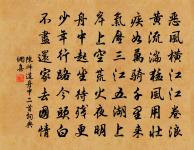 惡風橫江江卷浪
黃流湍猛風用壯
疾如萬騎千里來
氣壓三江五湖上
岸上空荒火夜明
舟中坐起待殘更
少年行路今頭白
不盡還家去國情
陳師道舟中二首詞典
網